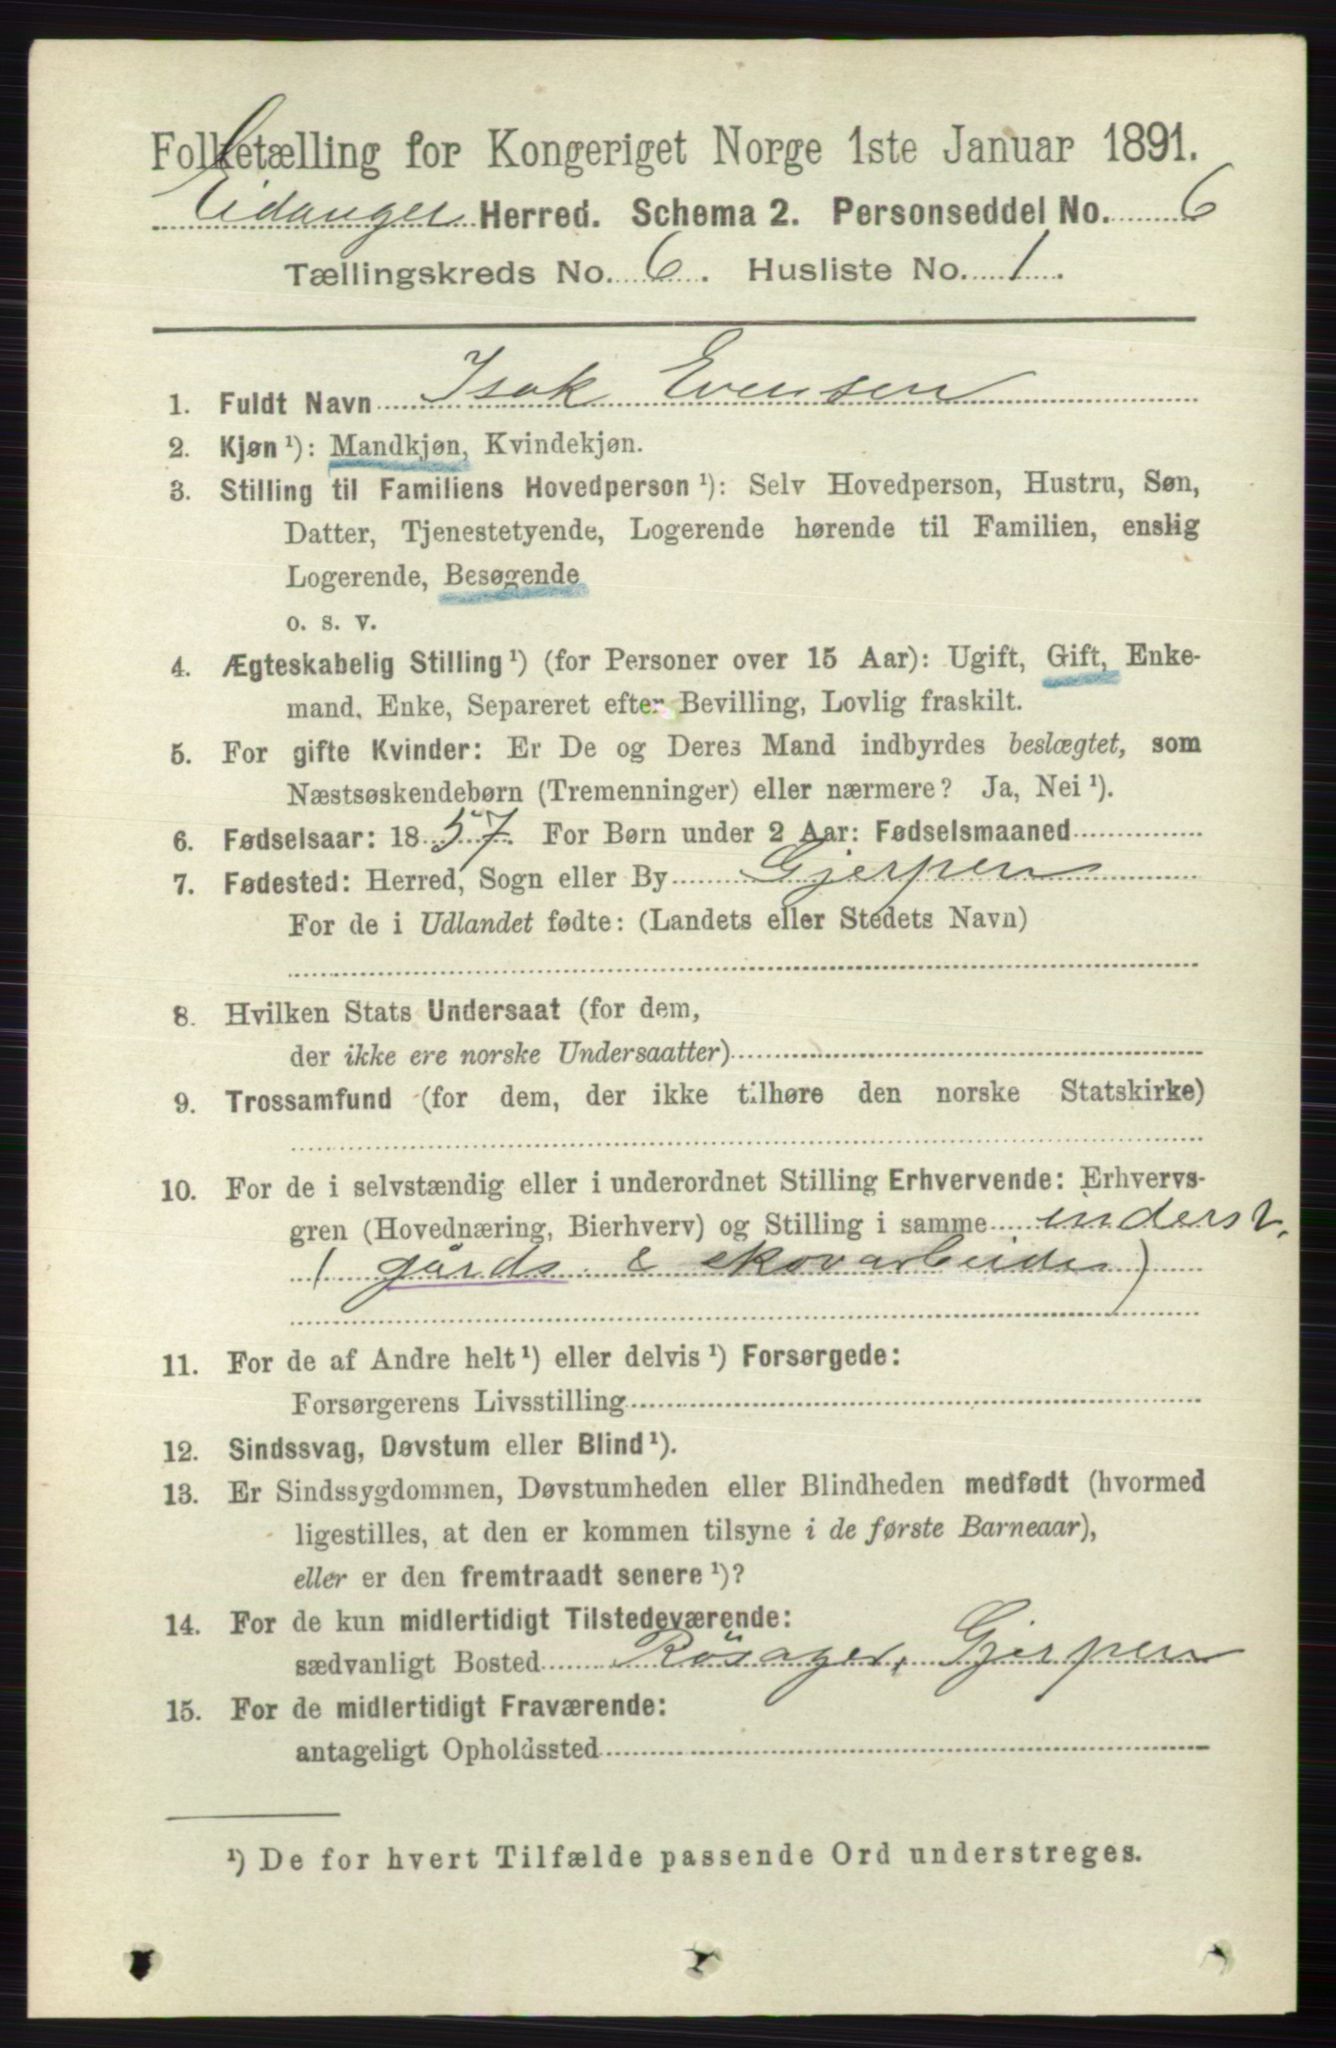 Folketælling for Kongeriget Norge 1ste Januar 1891.
Eidanger Herred. Schema 2. Personseddel No. 6
Tællingskreds No. 6. Husliste No. 1.
1. Fuldt Navn Isak Evensen
2. Kjøn ¹): Mandkjøn, Kvindekjøn.
3. Stilling til Familiens Hovedperson ¹): Selv Hovedperson, Hustru, Søn,
Datter, Tjenestetyende, Logerende hørende til Familien, enslig
Logerende, Besøgende
o. s. v.
4. Ægteskabelig Stilling ¹) (for Personer over 15 Aar): Ugift, Gift, Enke-
mand, Enke, Separeret efter Bevilling, Lovlig fraskilt.
5. For gifte Kvinder: Er De og Deres Mand indbyrdes beslægtet, som
Næstsøskendebørn (Tremenninger) eller nærmere? Ja, Nei ¹).
6. Fødselsaar: 1857. For Børn under 2 Aar: Fødselsmaaned
7. Fødested: Herred, Sogn eller By Gjerpen
For de i Udlandet fødte: (Landets eller Stedets Navn)
8. Hvilken Stats Undersaat (for dem,
der ikke ere norske Undersaatter)
9. Trossamfund (for dem, der ikke tilhøre den norske Statskirke)
10. For de i selvstændig eller i underordnet Stilling Erhvervende: Erhvervs-
gren (Hovednæring, Bierhverv) og Stilling i samme inderst.
( gårds & skovarbeider)
11. For de af Andre helt ¹) eller delvis ¹) Forsørgede:
Forsørgerens Livsstilling
12. Sindssvag, Døvstum eller Blind ¹).
13. Er Sindssygdommen, Døvstumheden eller Blindheden medfødt (hvormed
ligestilles, at den er kommen tilsyne i de første Barneaar),
eller er den fremtraadt senere ¹)?
14. For de kun midlertidigt Tilstedeværende:
sædvanligt Bosted Røsager, Gjerpen
15. For de midlertidigt Fraværende:
antageligt Opholdssted
¹) De for hvert Tilfælde passende Ord understreges.